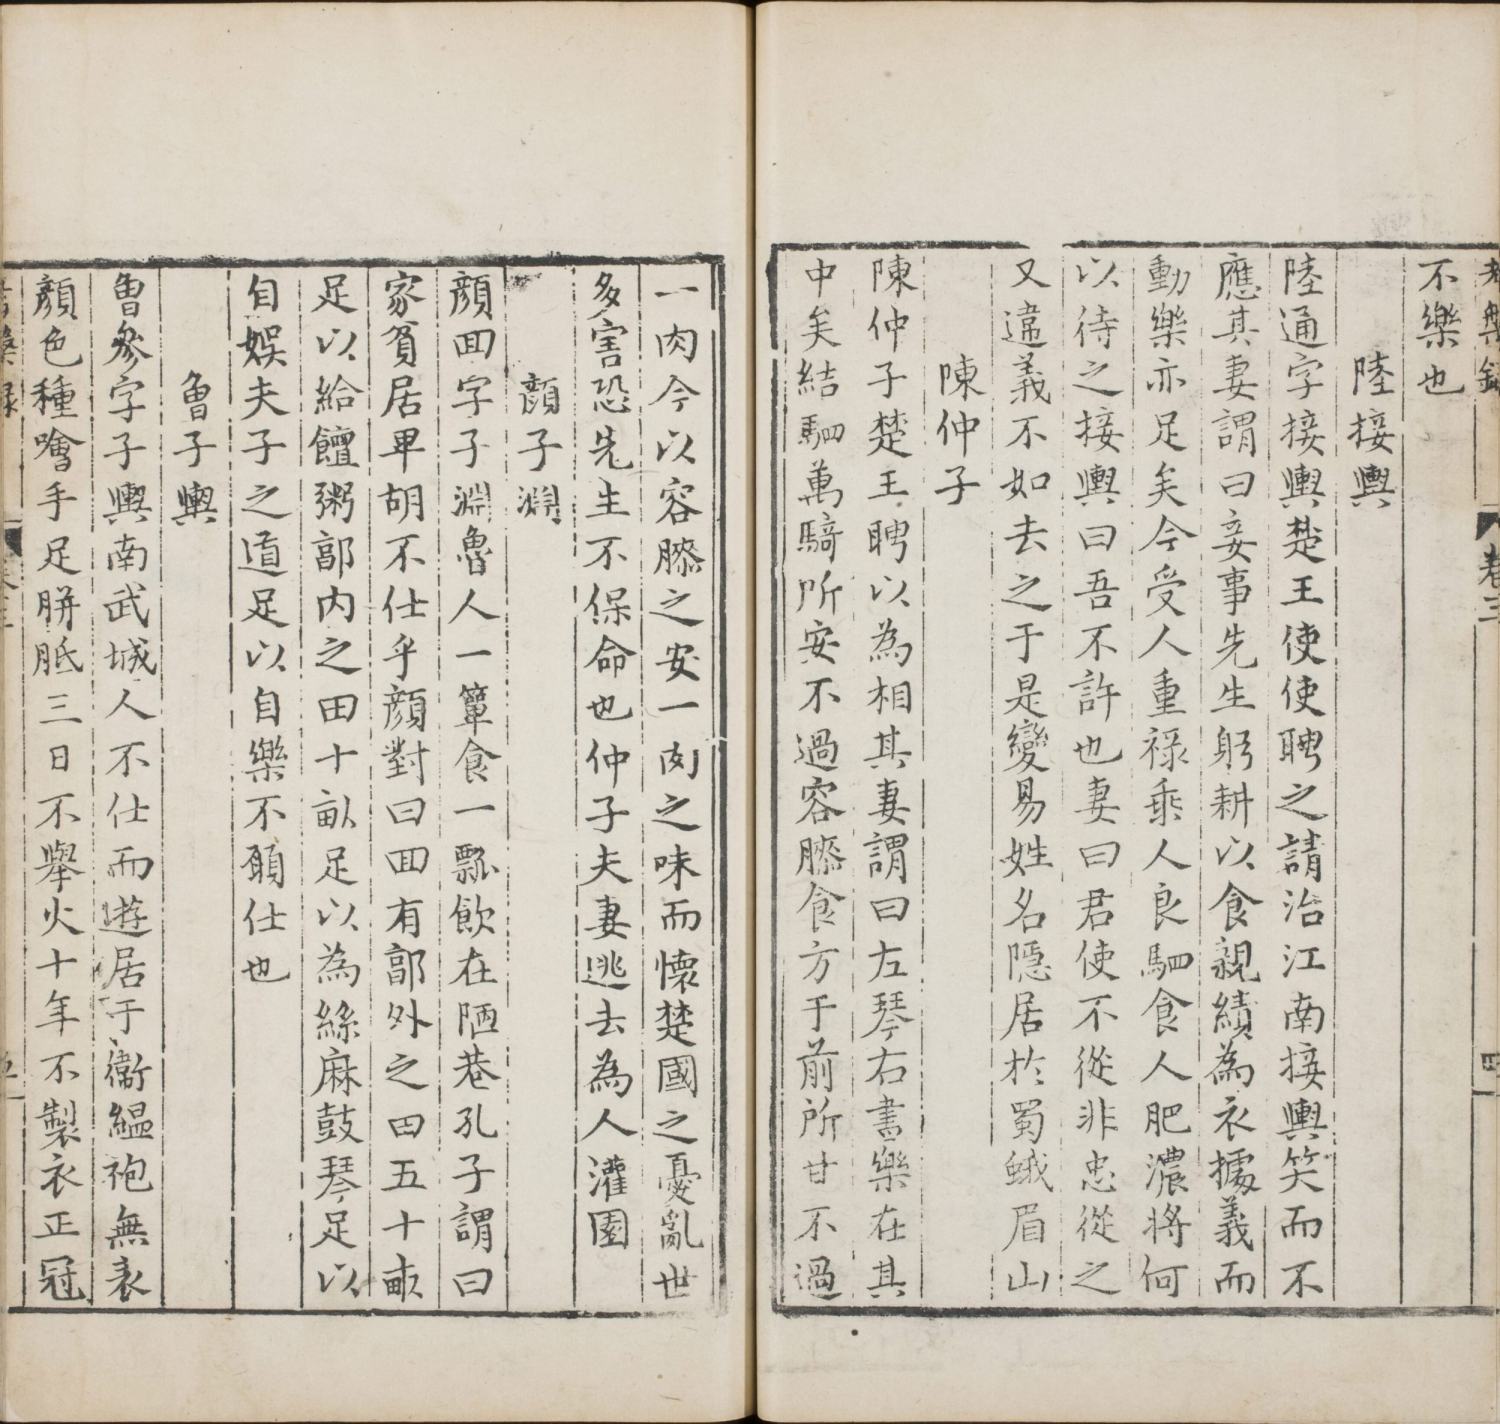 卷三
四
不樂也
陸接輿
陸通字接輿楚王使使聘之請治江南接輿笑而不
應其妻謂曰妾事先生躬耕以食親績為衣據義而
動樂亦足矣今受人重祿乘人良駟食人肥濃將何
以待之接輿曰吾不許也妻曰君使不從非忠從之
又違義不如去之于是變易姓名隱居於蜀蛾眉山
陳仲子
陳仲子楚王聘以為相其妻謂曰左琴右書樂在其
中矣結駟萬騎所安不過容膝食方于前所甘不過
一肉今以容膝之安一肉之味而懷楚國之憂亂世
多害恐先生不保命也仲子夫妻逃去為人灌園
顏子淵
顏回字子淵魯人一簞食一瓢飲在陋巷孔子謂曰
家貧居卑胡不仕乎顏對曰回有郭外之田五十畝
足以給饘粥郭內之田十畝足以為絲麻鼓琴足以
自娛夫子之道足以自樂不願仕也
曾子輿
曾參字子輿南武城人不仕而遊居于衞縕袍無表
顏色種噲手足胼胝三日不舉火十年不製衣正冠